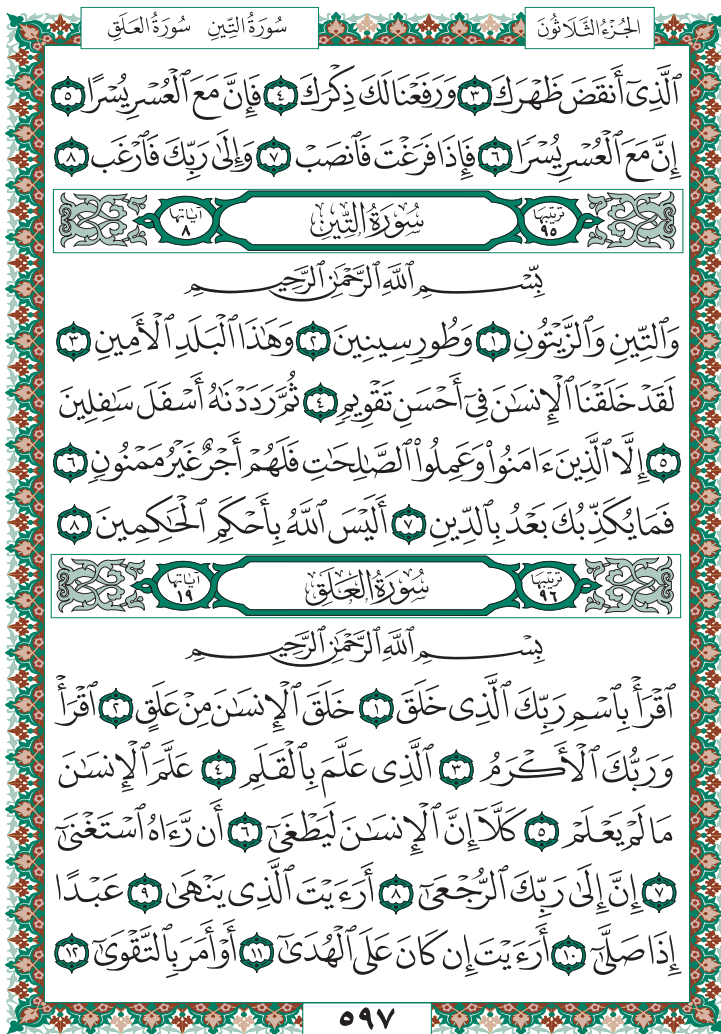 سُورَةُ التِّينِ سُورَةُ العَلَقِ
الجُزْءُ الثَّلَاثُونَ
ٱلَّذِىٓ أَنقَضَ ظَهْرَكَ ٣ وَرَفَعْنَا لَكَ ذِكْرَكَ ٤ فَإِنَّ مَعَ ٱلْعُسْرِ يُسْرًا ٥
إِنَّ مَعَ ٱلْعُسْرِ يُسْرًا ٦ فَإِذَا فَرَغْتَ فَٱنصَبْ ٧ وَإِلَىٰ رَبِّكَ فَٱرْغَب ٨
ترتيبها ٩٥ سُورَةُ التِّينِ آياتها ٨
بِّسْمِ ٱللَّهِ ٱلرَّحْمَٰنِ ٱلرَّحِيمِ
وَٱلتِّينِ وَٱلزَّيْتُونِ ١ وَطُورِ سِينِينَ ٢ وَهَٰذَا ٱلْبَلَدِ ٱلْأَمِينِ ٣
لَقَدْ خَلَقْنَا ٱلْإِنسَٰنَ فِىٓ أَحْسَنِ تَقْوِيمٍ ٤ ثُمَّ رَدَدْنَٰهُ أَسْفَلَ سَٰفِلِينَ
٥ إِلَّا ٱلَّذِينَ ءَامَنُوا۟ وَعَمِلُوا۟ ٱلصَّٰلِحَٰتِ فَلَهُمْ أَجْرٌ غَيْرُ مَمْنُونٍ ٦
فَمَا يُكَذِّبُكَ بَعْدُ بِٱلدِّينِ ٧ أَلَيْسَ ٱللَّهُ بِأَحْكَمِ ٱلْحَٰكِمِينَ ٨
ترتيبها ٩٦ سُورَةُ العَلَقِ آياتها ١٩
بِسْمِ ٱللَّهِ ٱلرَّحْمَٰنِ ٱلرَّحِيمِ
ٱقْرَأْ بِٱسْمِ رَبِّكَ ٱلَّذِى خَلَقَ ١ خَلَقَ ٱلْإِنسَٰنَ مِنْ عَلَقٍ ٢ ٱقْرَأْ
وَرَبُّكَ ٱلْأَكْرَمُ ٣ ٱلَّذِى عَلَّمَ بِٱلْقَلَمِ ٤ عَلَّمَ ٱلْإِنسَٰنَ
مَا لَمْ يَعْلَمْ ٥ كَلَّآ إِنَّ ٱلْإِنسَٰنَ لَيَطْغَىٰٓ ٦ أَن رَّءَاهُ ٱسْتَغْنَىٰٓ
٧ إِنَّ إِلَىٰ رَبِّكَ ٱلرُّجْعَىٰٓ ٨ أَرَءَيْتَ ٱلَّذِى يَنْهَىٰ ٩ عَبْدًا
إِذَا صَلَّىٰٓ ١٠ أَرَءَيْتَ إِن كَانَ عَلَى ٱلْهُدَىٰٓ ١١ أَوْ أَمَرَ بِٱلتَّقْوَىٰٓ ١٢
٥٩٧